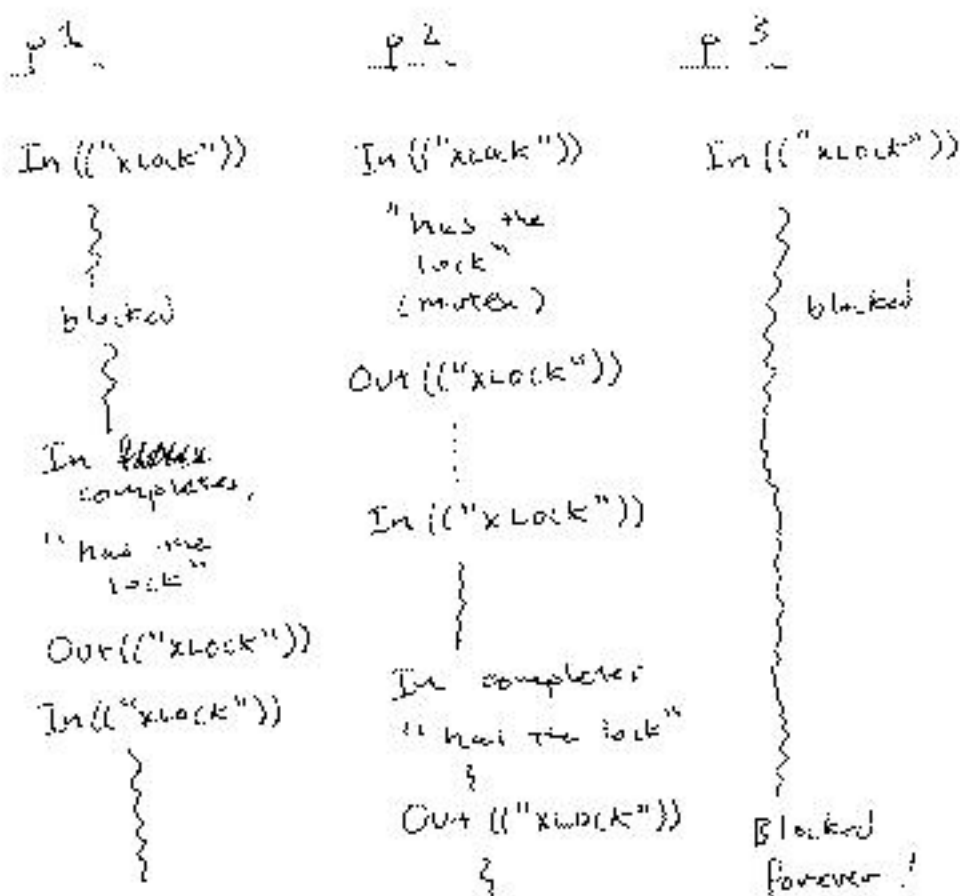 p1
In(("xLock"))
blocked
In
completes,
"has the
lock"
Out(("xLock"))
In(("xLock"))
p2
In(("xLock"))
"has the
lock"
(mutex)
Out(("xLock"))
In(("xLock"))
In completes
"has the lock"
Out(("xLock"))
p3
In(("xLock"))
blocked
Blocked
forever!